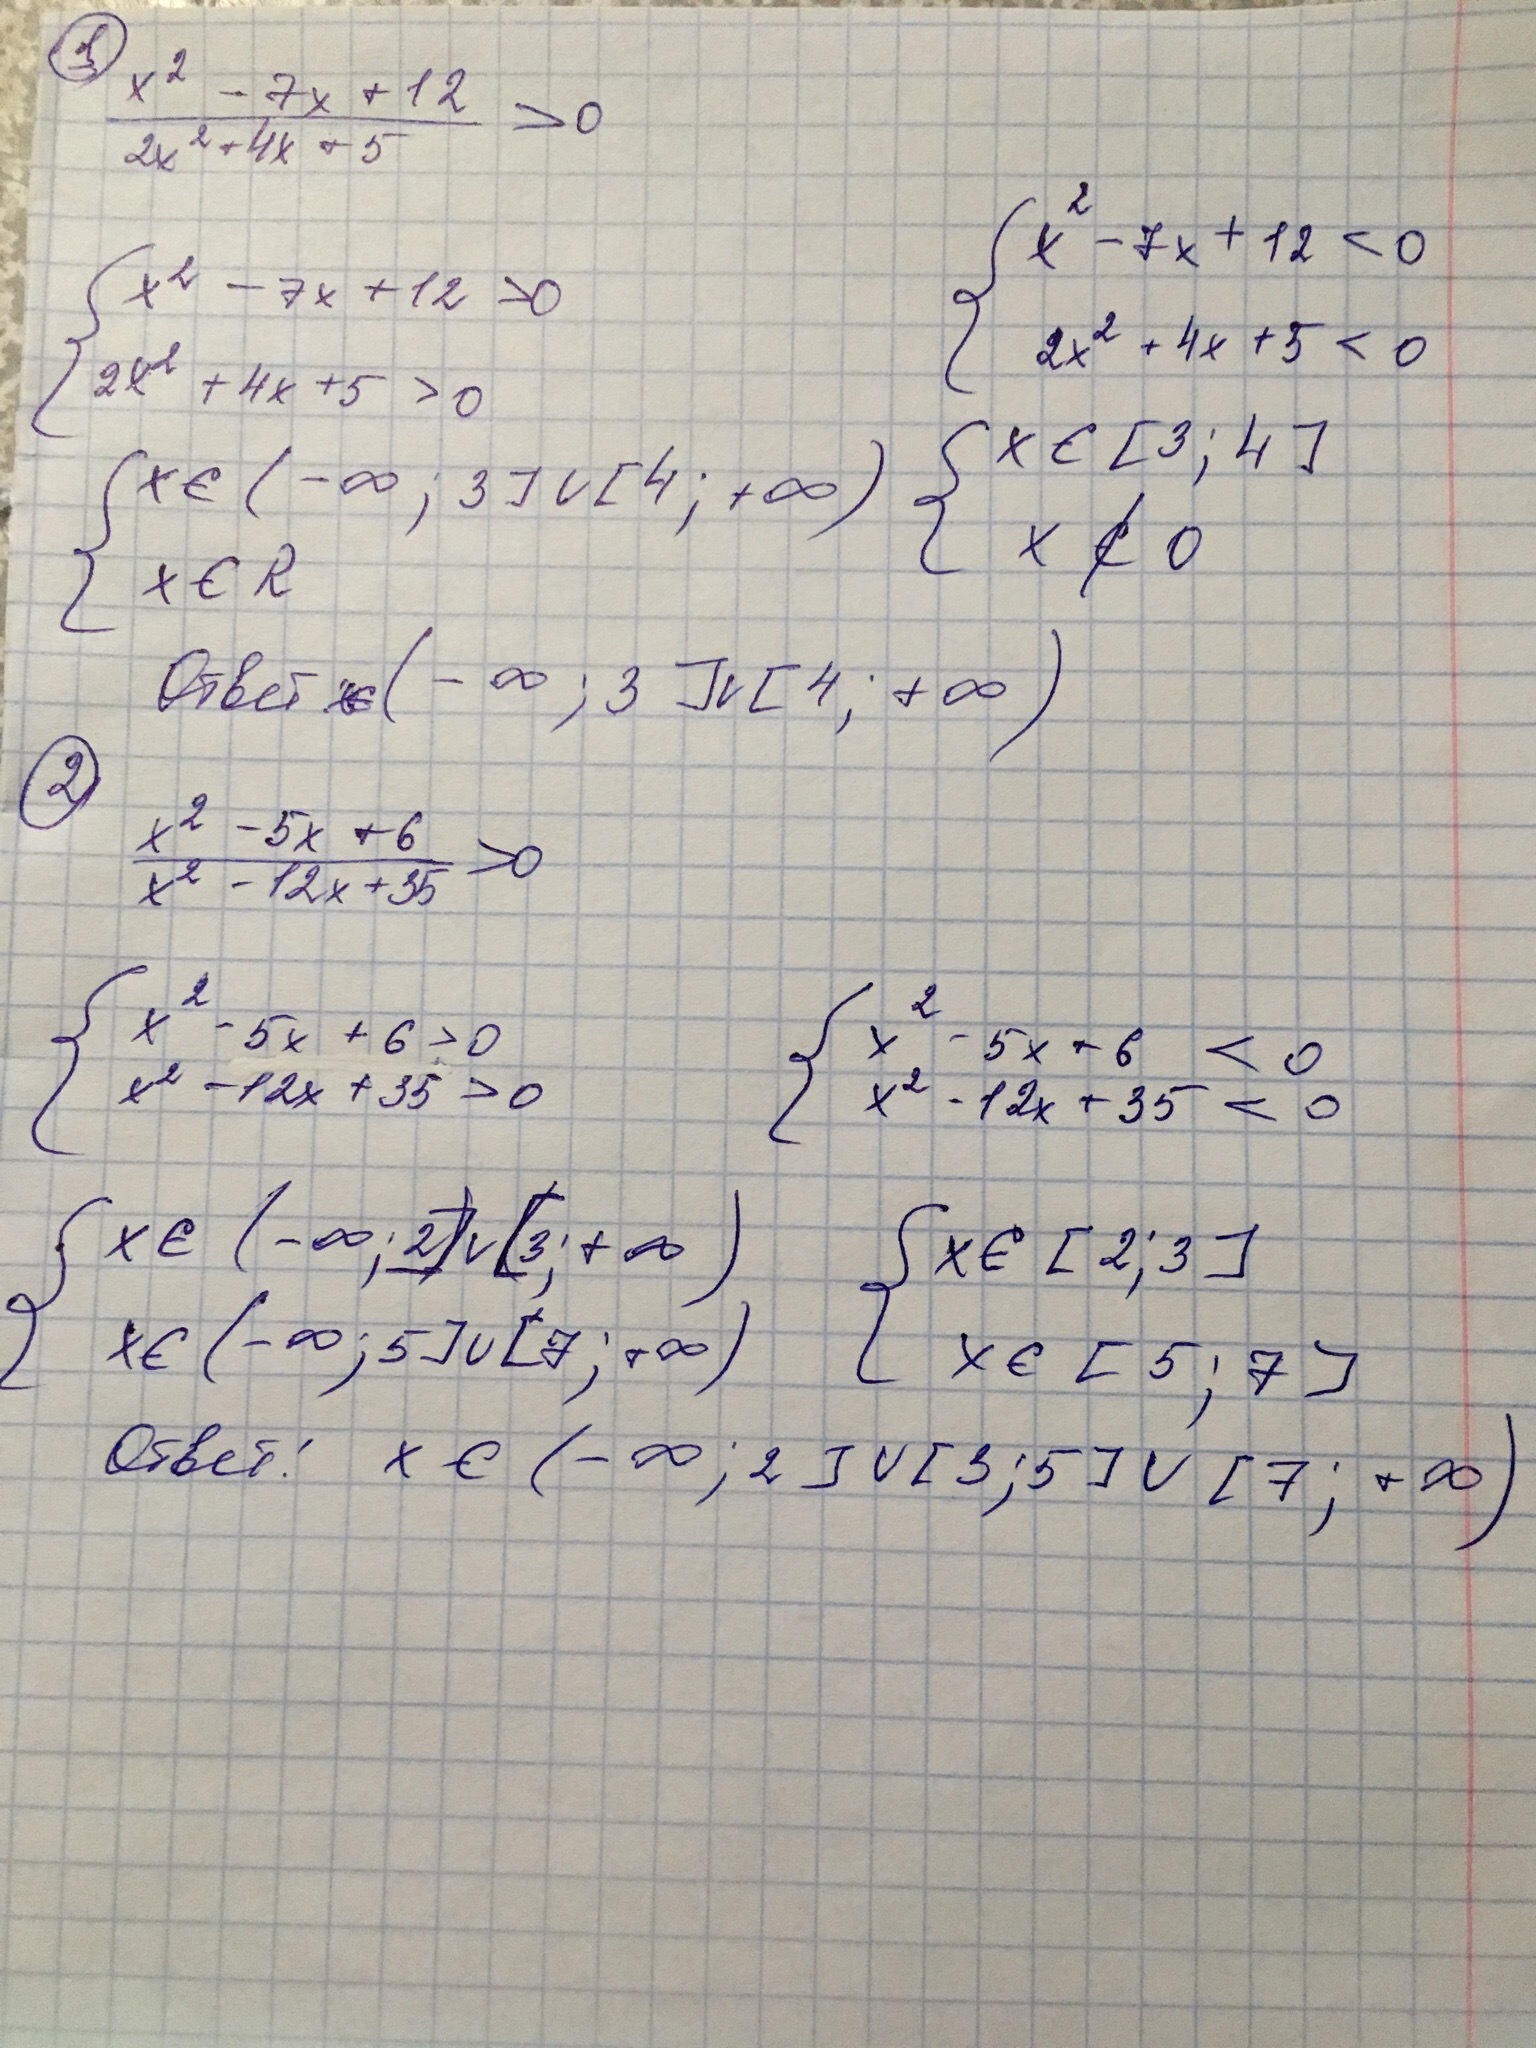 1
x² - 7x + 12
2x² + 4x + 5 > 0
{ x² - 7x + 12 > 0
2x² + 4x + 5 > 0
{ x² - 7x + 12 < 0
2x² + 4x + 5 < 0
{ x ∈ (-∞; 3] ∪ [4; +∞)
x ∈ R
{ x ∈ [3; 4]
x ∉ 0
Ответ: x ∈ (-∞; 3] ∪ [4; +∞)
2
x² - 5x + 6
x² - 12x + 35 > 0
{ x² - 5x + 6 > 0
x² - 12x + 35 > 0
{ x² - 5x + 6 < 0
x² - 12x + 35 < 0
{ x ∈ (-∞; 2] ∪ [3; +∞)
x ∈ (-∞; 5] ∪ [7; +∞)
{ x ∈ [2; 3]
x ∈ [5; 7]
Ответ: x ∈ (-∞; 2] ∪ [3; 5] ∪ [7; +∞)